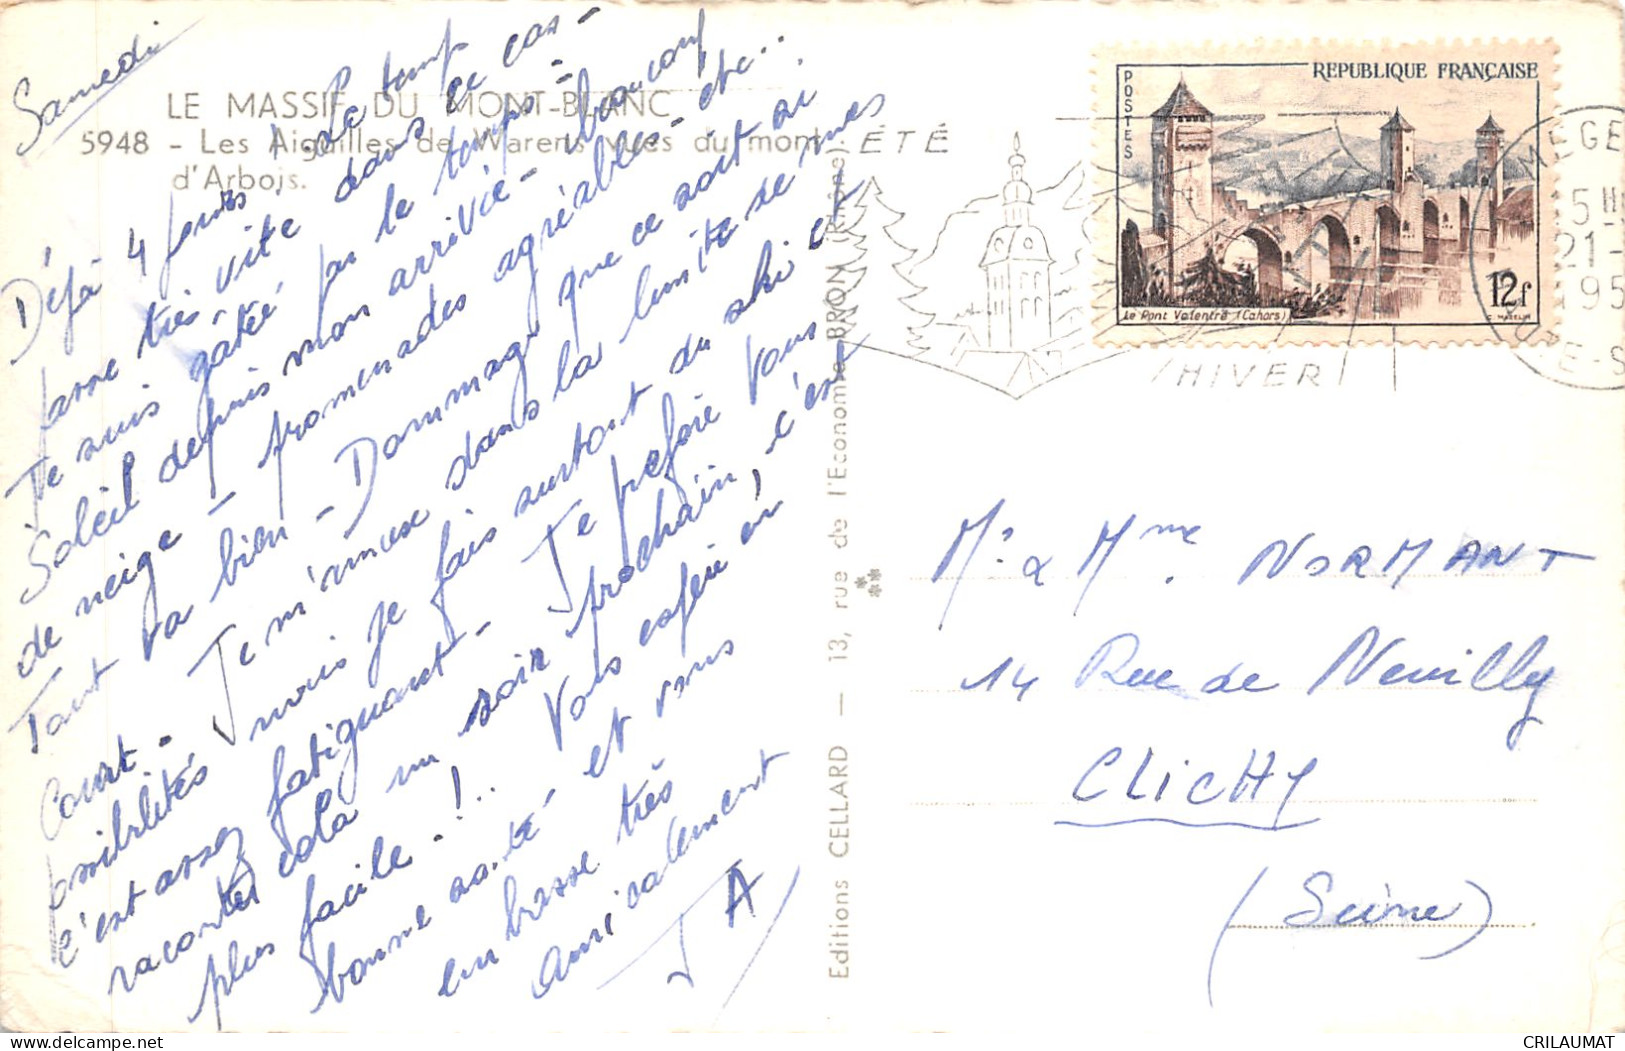 Samedi
LE MASSIF DU MONT-BLANC
5948 - Les Aiguilles de Warens vues du mont
d'Arbois.
Déjà 4 jours ! Le temps
passe très vite dans ce cas -
Je suis gâtée par le temps -
Soleil depuis mon arrivée - beaucoup
de neige - promenades agréables - etc...
Tout va bien - Dommage que ce soit si
court - Je m'amuse dans la limite de mes
possibilités mais je fais surtout du ski et
c'est assez fatiguant - Je préfère vous
raconter cela un soir prochain, c'est
plus facile - !.. Vous espère en
bonne santé et vous
embrasse très
amicalement
JA
Editions CELLARD — 13, rue de l'Economie, BRON (Rhône)
POSTES
REPUBLIQUE FRANÇAISE
Le Pont Valentré (Cahors)
12f
ÉTÉ
HIVER
MEGE
15 H
21 -
195
TE-S
Mr & Mme NORMANT
14 Rue de Neuilly
CLICHY
(Seine)
CRILAUMAT